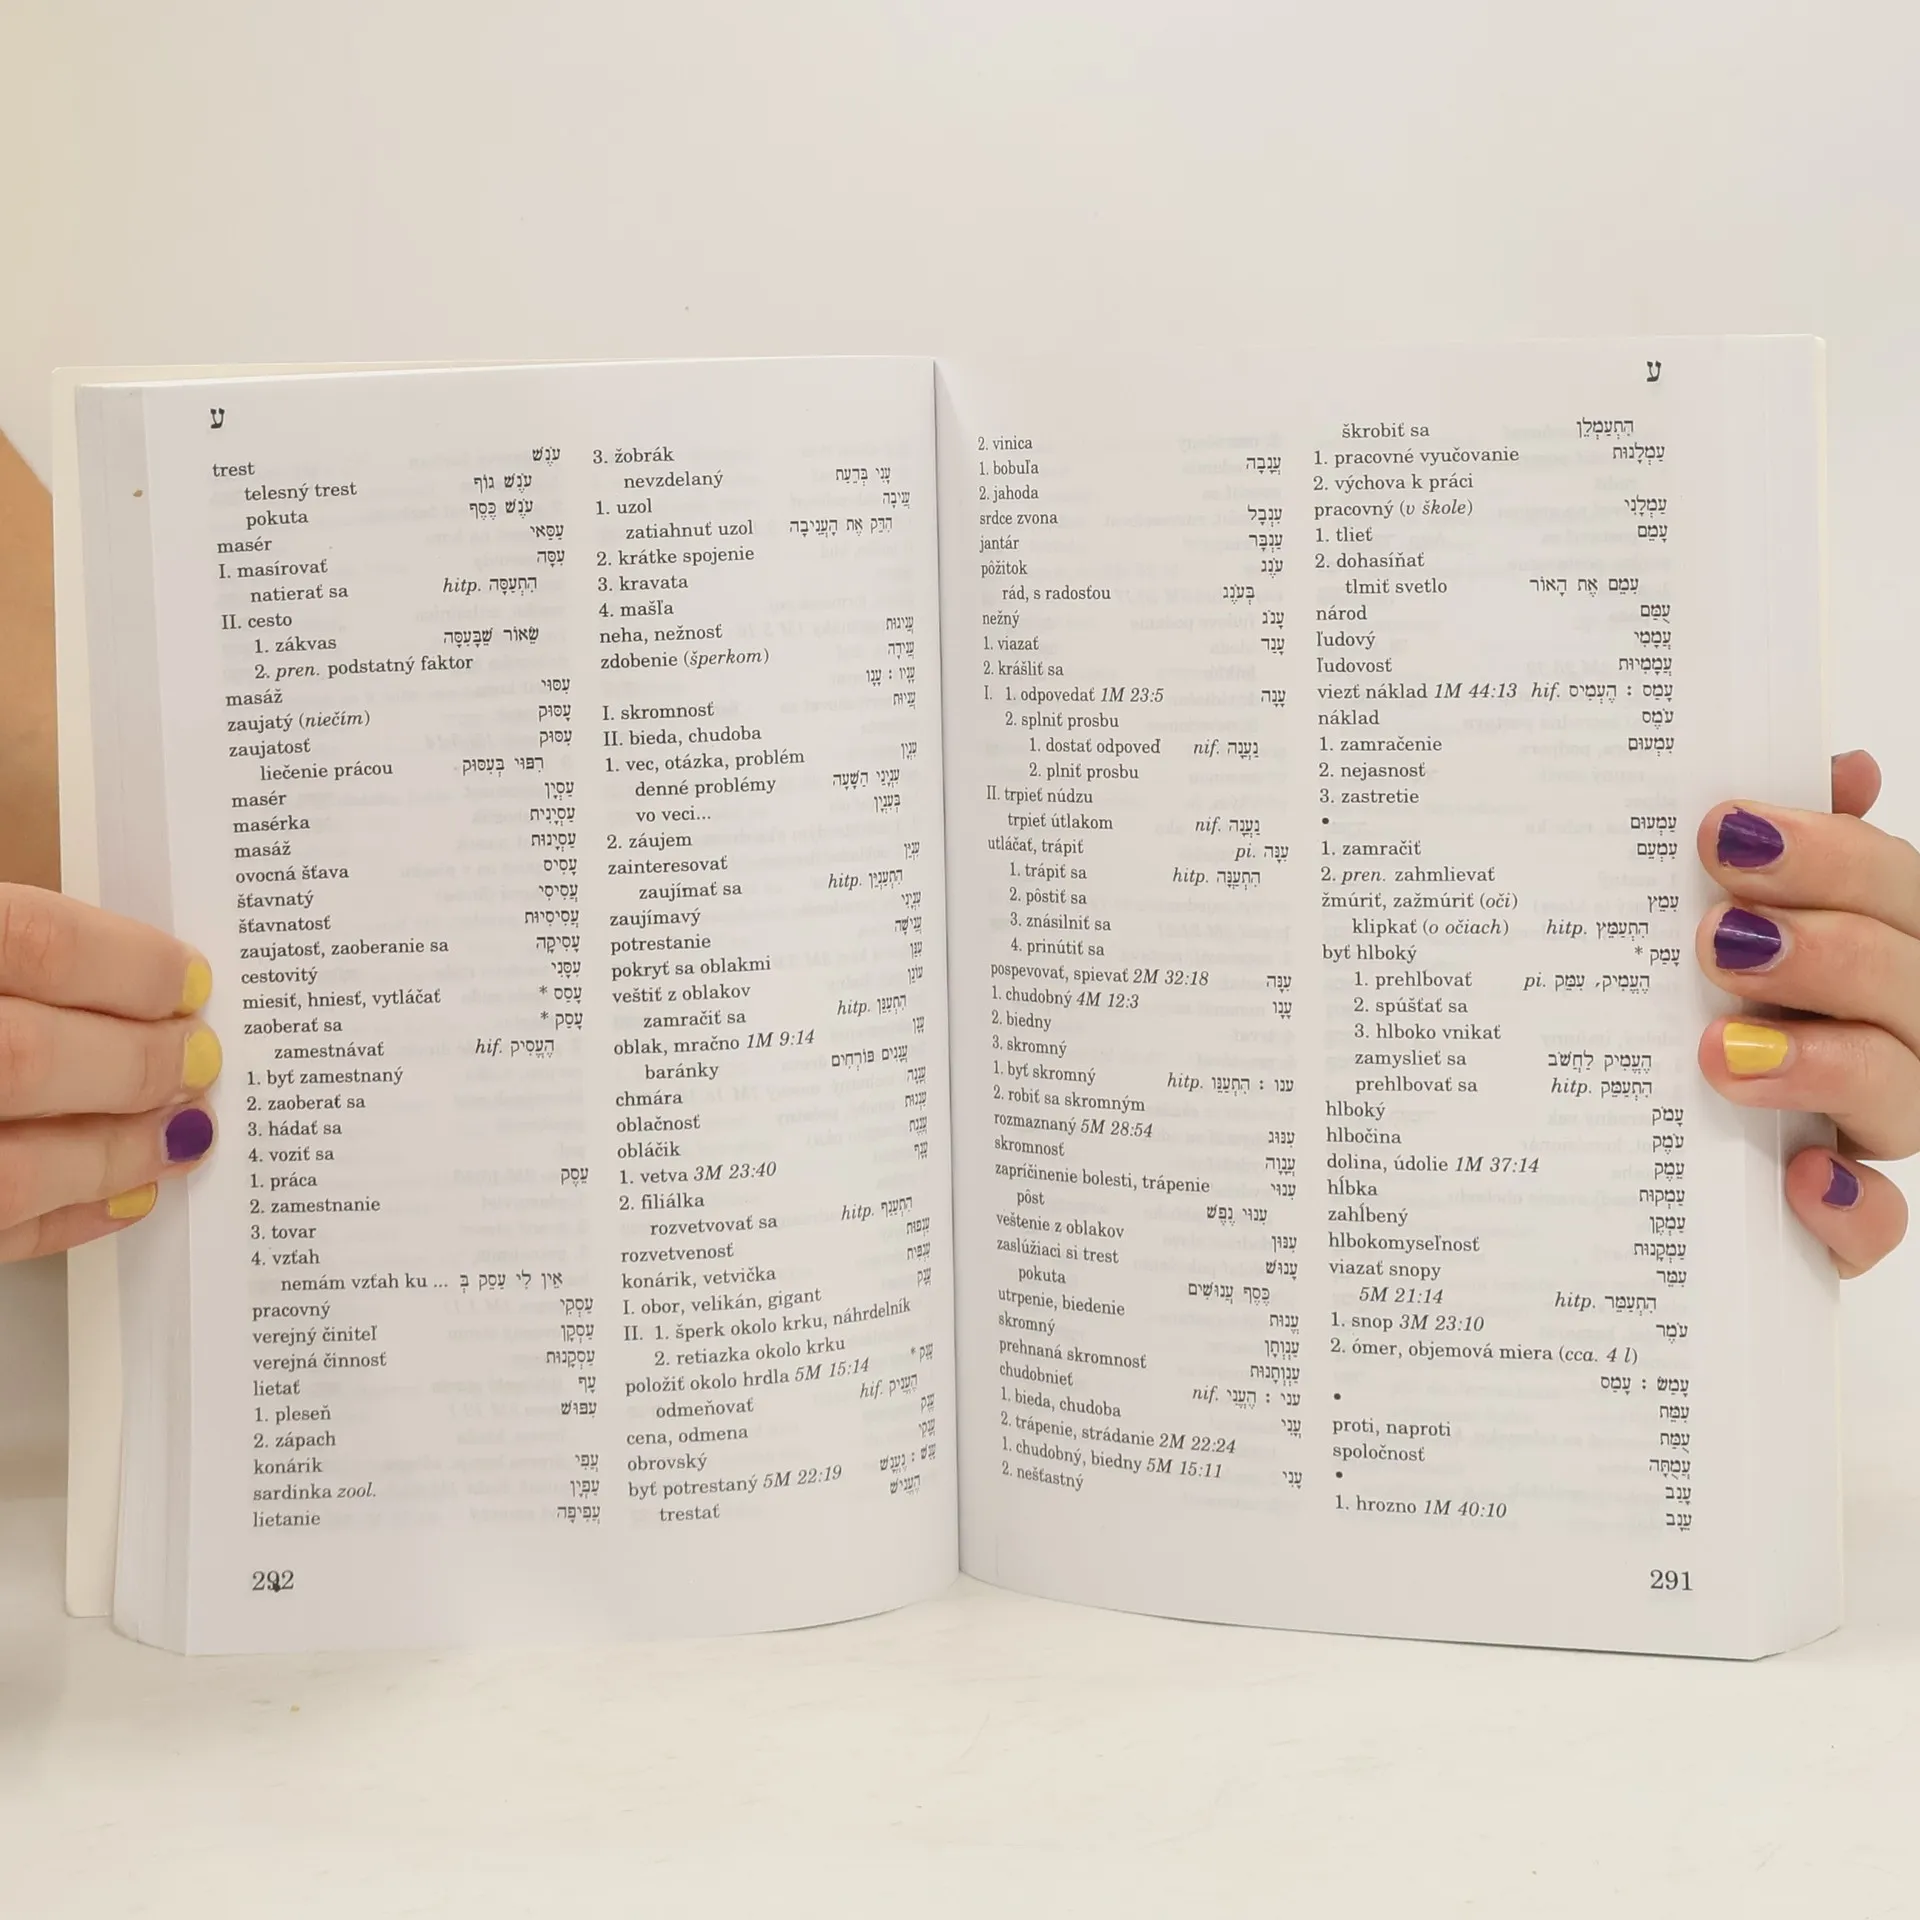 ע
škrobiť sa הִתְעַמְלֵן
1. pracovné vyučovanie עַמְלָנוּת
2. výchova k práci
pracovný (v škole) עַמְלָנִי
1. tlieť עָמַם
2. dohasíňať
tlmiť svetlo עִמֵּם אֶת הָאוֹר
národ עַמָּם
ľudový עֲמָמִי
ľudovosť עֲמָמִיּוּת
viezť náklad 1M 44:13 hif. עָמַס : הֶעֱמִיס
náklad עֹמֶס
1. zamračenie עִמְעוּם
2. nejasnosť
3. zastretie
• עַמְעוּם
1. zamračiť עִמְעֵם
2. pren. zahmlievať
žmúriť, zažmúriť (oči) עִמֵּץ
klipkať (o očiach) hitp. הִתְעַמֵּץ
byť hlboký עָמַק *
1. prehlbovať pi. הֶעֱמִיק, עִמֵּק
2. spúšťať sa
3. hlboko vnikať
zamyslieť sa הֶעֱמִיק לַחֲשֹׁב
prehlbovať sa hitp. הִתְעַמֵּק
hlboký עָמֹק
hlbočina עֹמֶק
dolina, údolie 1M 37:14 עֵמֶק
hĺbka עַמְקוּת
zahĺbený עַמְקָן
hlbokomyseľnosť עַמְקָנוּת
viazať snopy עִמֵּר
5M 21:14 hitp. הִתְעַמֵּר
1. snop 3M 23:10 עֹמֶר
2. ómer, objemová miera (cca. 4 l)
עָמַשׂ : עָמַס
• עִמֵּת
proti, naproti עֻמַּת
spoločnosť עֲמֻתָּה
• עָנַב
1. hrozno 1M 40:10 עֵנָב
2. vinica
1. bobuľa עֲנָבָה
2. jahoda
srdce zvona עִנְבָּל
jantár עִנְבָּר
pôžitok עֹנֶג
rád, s radosťou בְּעֹנֶג
nežný עָנֹג
1. viazať עָנַד
2. krášliť sa
I. 1. odpovedať 1M 23:5 עָנָה
2. splniť prosbu
1. dostať odpoveď nif. נַעֲנָה
2. plniť prosbu
II. trpieť núdzu
trpieť útlakom nif. נַעֲנָה
utláčať, trápiť pi. עִנָּה
1. trápiť sa hitp. הִתְעַנָּה
2. pôstiť sa
3. znásilniť sa
4. prinútiť sa
pospevovať, spievať 2M 32:18 עִנָּה
1. chudobný 4M 12:3 עָנָו
2. biedny
3. skromný
1. byť skromný hitp. ענו : הִתְעַנֵּו
2. robiť sa skromným
rozmaznaný 5M 28:54 עִנּוּג
skromnosť עֲנָוָה
zapríčinenie bolesti, trápenie עִנּוּי
pôst עִנּוּי נֶפֶשׁ
veštenie z oblakov עִנּוּן
zaslúžiaci si trest עָנוּשׁ
pokuta כֶּסֶף עֲנוּשִׁים
utrpenie, biedenie עֱנוּת
skromný עַנְוְתָן
prehnaná skromnosť עַנְוְתָנוּת
chudobnieť nif. עני : הֶעֱנִי
1. bieda, chudoba עֳנִי
2. trápenie, strádanie 2M 22:24
1. chudobný, biedny 5M 15:11 עָנִי
2. nešťastný
291
ע
3. žobrák
nevzdelaný עָנִי בְּדַעַת
1. uzol עֲנִיבָה
zatiahnuť uzol הִדֵּק אֶת הָעֲנִיבָה
2. krátke spojenie
3. kravata
4. mašľa
neha, nežnosť עֲנִיגוּת
zdobenie (šperkom) עֲנִידָה
עָנָיו : עָנָו
I. skromnosť עֲנִיּוּת
II. bieda, chudoba
1. vec, otázka, problém עִנְיָן
denné problémy עִנְיְנֵי הַשָּׁעָה
vo veci... בְּעִנְיַן
2. záujem
zainteresovať עִנְיֵן
zaujímať sa hitp. הִתְעַנְיֵן
zaujímavý עִנְיָנִי
potrestanie עֲנִישָׁה
pokryť sa oblakmi עָנַן
veštiť z oblakov עוֹנֵן
zamračiť sa hitp. הִתְעַנֵּן
oblak, mračno 1M 9:14 עָנָן
baránky עֲנָנִים פּוֹרְחִים
chmára עֲנָנָה
oblačnosť עֲנָנוּת
obláčik עֲנֶנֶת
1. vetva 3M 23:40 עָנָף
2. filiálka
rozvetvovať sa hitp. הִתְעַנֵּף
rozvetvenosť עַנְפוּת
konárik, vetvička עַנְפִּית
I. obor, velikán, gigant עֲנָק
II. 1. šperk okolo krku, náhrdelník
2. retiazka okolo krku
položiť okolo hrdla 5M 15:14 עָנַק *
odmeňovať hif. הֶעֱנִיק
cena, odmena עֶנֶק
obrovský עֲנָקִי
byť potrestaný 5M 22:19 עָנַשׁ : נֶעֱנַשׁ
trestať הֶעֱנִישׁ
trest עֹנֶשׁ
telesný trest עֹנֶשׁ גּוּף
pokuta עֹנֶשׁ כֶּסֶף
masér עַסַּאי
I. masírovať עִסָּה
natierať sa hitp. הִתְעַסָּה
II. cesto
1. zákvas שְׂאוֹר שֶׁבָּעִסָּה
2. pren. podstatný faktor
masáž עִסּוּי
zaujatý (niečím) עָסוּק
zaujatosť עִסּוּק
liečenie prácou רִפּוּי בְּעִסּוּק
masér עַסְיָן
masérka עַסְיָנִית
masáž עַסְיָנוּת
ovocná šťava עָסִיס
šťavnatý עֲסִיסִי
šťavnatosť עֲסִיסִיּוּת
zaujatosť, zaoberanie sa עֲסִיקָה
cestovitý עִסָּנִי
miesiť, hniesť, vytláčať עָסַס *
zaoberať sa עָסַק *
zamestnávať hif. הֶעֱסִיק
1. byť zamestnaný
2. zaoberať sa
3. hádať sa
4. voziť sa
1. práca עֵסֶק
2. zamestnanie
3. tovar
4. vzťah
nemám vzťah ku ... אֵין לִי עֵסֶק בְּ
pracovný עִסְקִי
verejný činiteľ עַסְקָן
verejná činnosť עַסְקָנוּת
lietať עָף
1. pleseň עִפּוּשׁ
2. zápach
konárik עֳפִי
sardinka zool. עַפְיָן
lietanie עֲפִיפָה
292